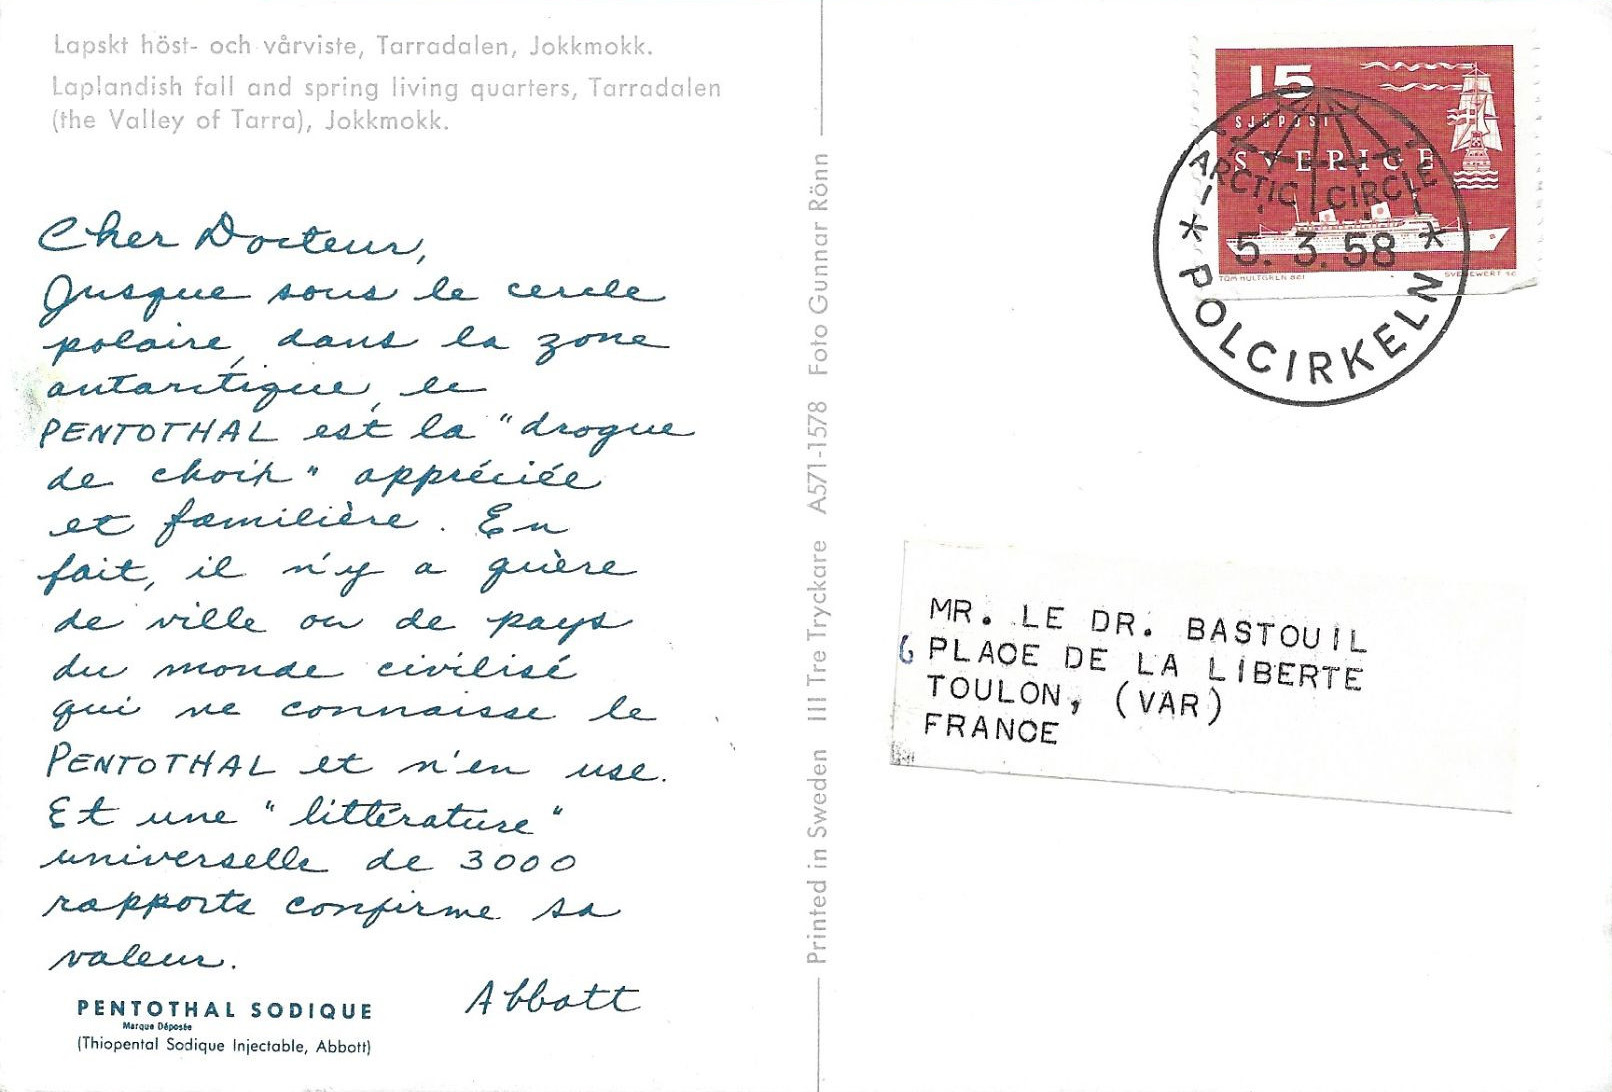 Lapskt höst- och vårviste, Tarradalen, Jokkmokk.
Laplandish fall and spring living quarters, Tarradalen
(the Valley of Tarra), Jokkmokk.
Cher Docteur,
Jusque sous le cercle
polaire, dans la zone
antarctique, le
PENTOTHAL est la "drogue
de choix" appréciée
et familière. En
fait, il n'y a guère
de ville ou de pays
du monde civilisé
qui ne connaisse le
PENTOTHAL et n'en use.
Et une "littérature"
universelle de 3000
rapports confirme sa
valeur.
Abbott
PENTOTHAL SODIQUE
Marque Déposée
(Thiopental Sodique Injectable, Abbott)
Printed in Sweden III Tre Tryckare A571-1578 Foto Gunnar Rönn
15
SJÖPOST
SVERIGE
TOM HULTGREN DEL
SV. EWERT SC
ARCTIC CIRCLE
5. 3. 58
POLCIRKELN
MR. LE DR. BASTOUIL
6 PLACE DE LA LIBERTE
TOULON, (VAR)
FRANCE